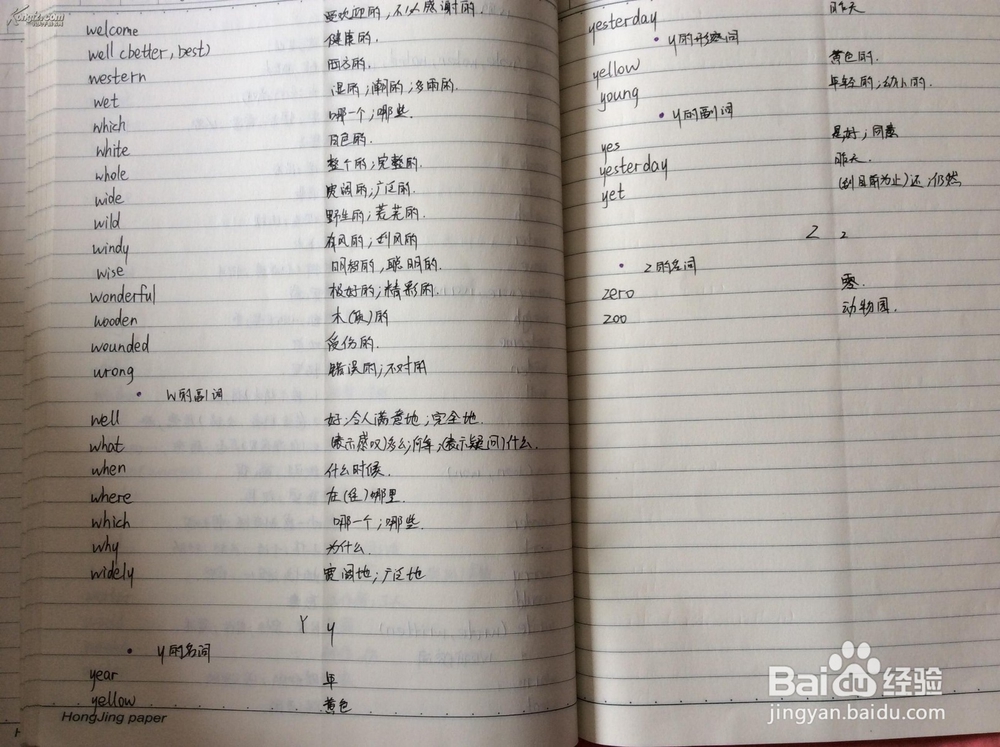 welcome 受欢迎的,不必感谢的
well (better, best) 健康的.
western 西方的.
wet 湿的;潮的;多雨的.
which 哪一个;哪些.
white 白色的.
whole 整个的;完整的.
wide 宽阔的;广泛的.
wild 野生的;荒芜的.
windy 有风的;刮风的
wise 明智的,聪明的.
wonderful 极好的;精彩的.
wooden 木(质)的
wounded 受伤的.
wrong 错误的;不对的
• W的副词
well 好;令人满意地;完全地.
what (表示感叹)多么;何等;(表示疑问)什么.
when 什么时候.
where 在(往)哪里.
which 哪一个;哪些.
why 为什么.
widely 宽阔地;广泛地
Y y
• y的名词
year 年
yellow 黄色
HongJing paper
yesterday 昨天
• y的形容词
yellow 黄色的.
young 年轻的;幼小的.
• y的副词
yes 是;好;同意
yesterday 昨天.
yet (到目前为止)还;仍然
Z z
• z的名词
zero 零.
zoo 动物园.
Bai du 经验
jingyan.baidu.com